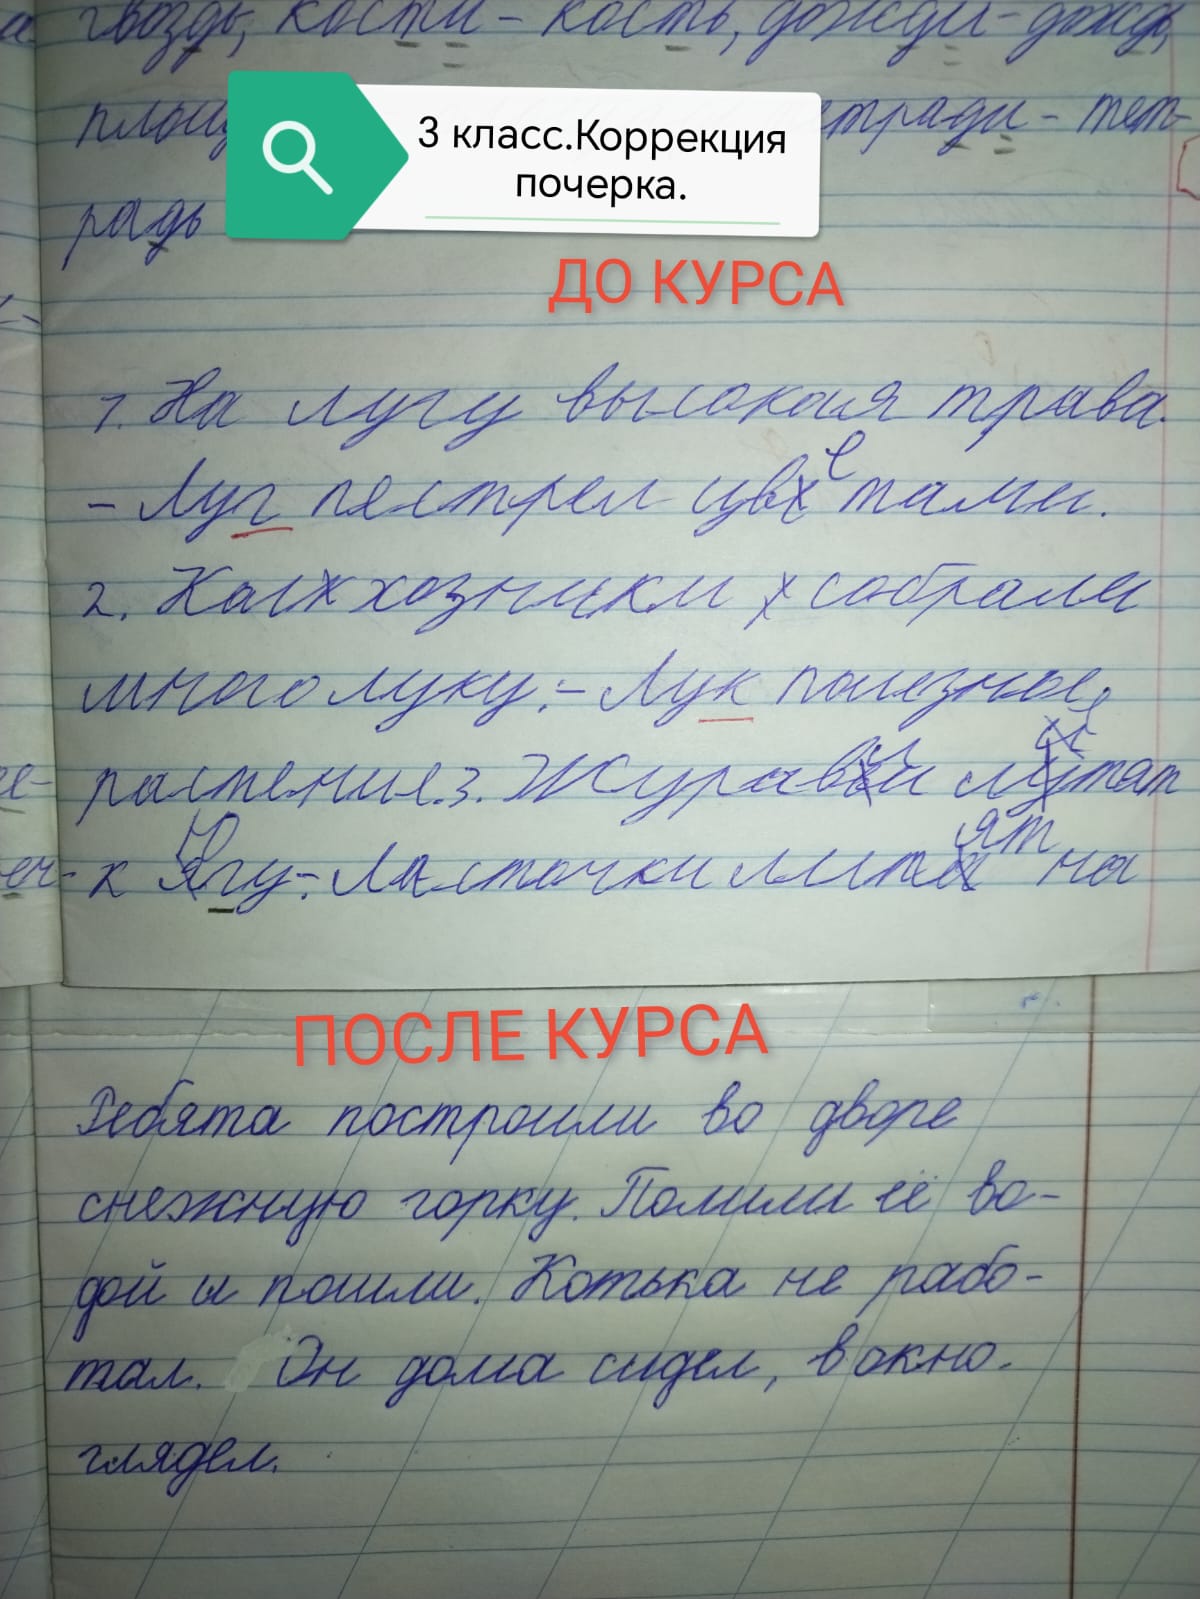 гвоздь, кости - кость, дожди - дождь,
площ
тетради - тет-
радь
3 класс.Коррекция
почерка.
ДО КУРСА
1. На лугу высокая трава.
- Луг пестрел цветами.
2. Колхозники собрали
много луку: - Лук полезное
растение. 3. Журавли летят
к югу: - Ласточки летят на
ПОСЛЕ КУРСА
Ребята построили во дворе
снежную горку. Полили её во-
дой и пошли. Котька не рабо-
тал. Он дома сидел, в окно.
глядел.